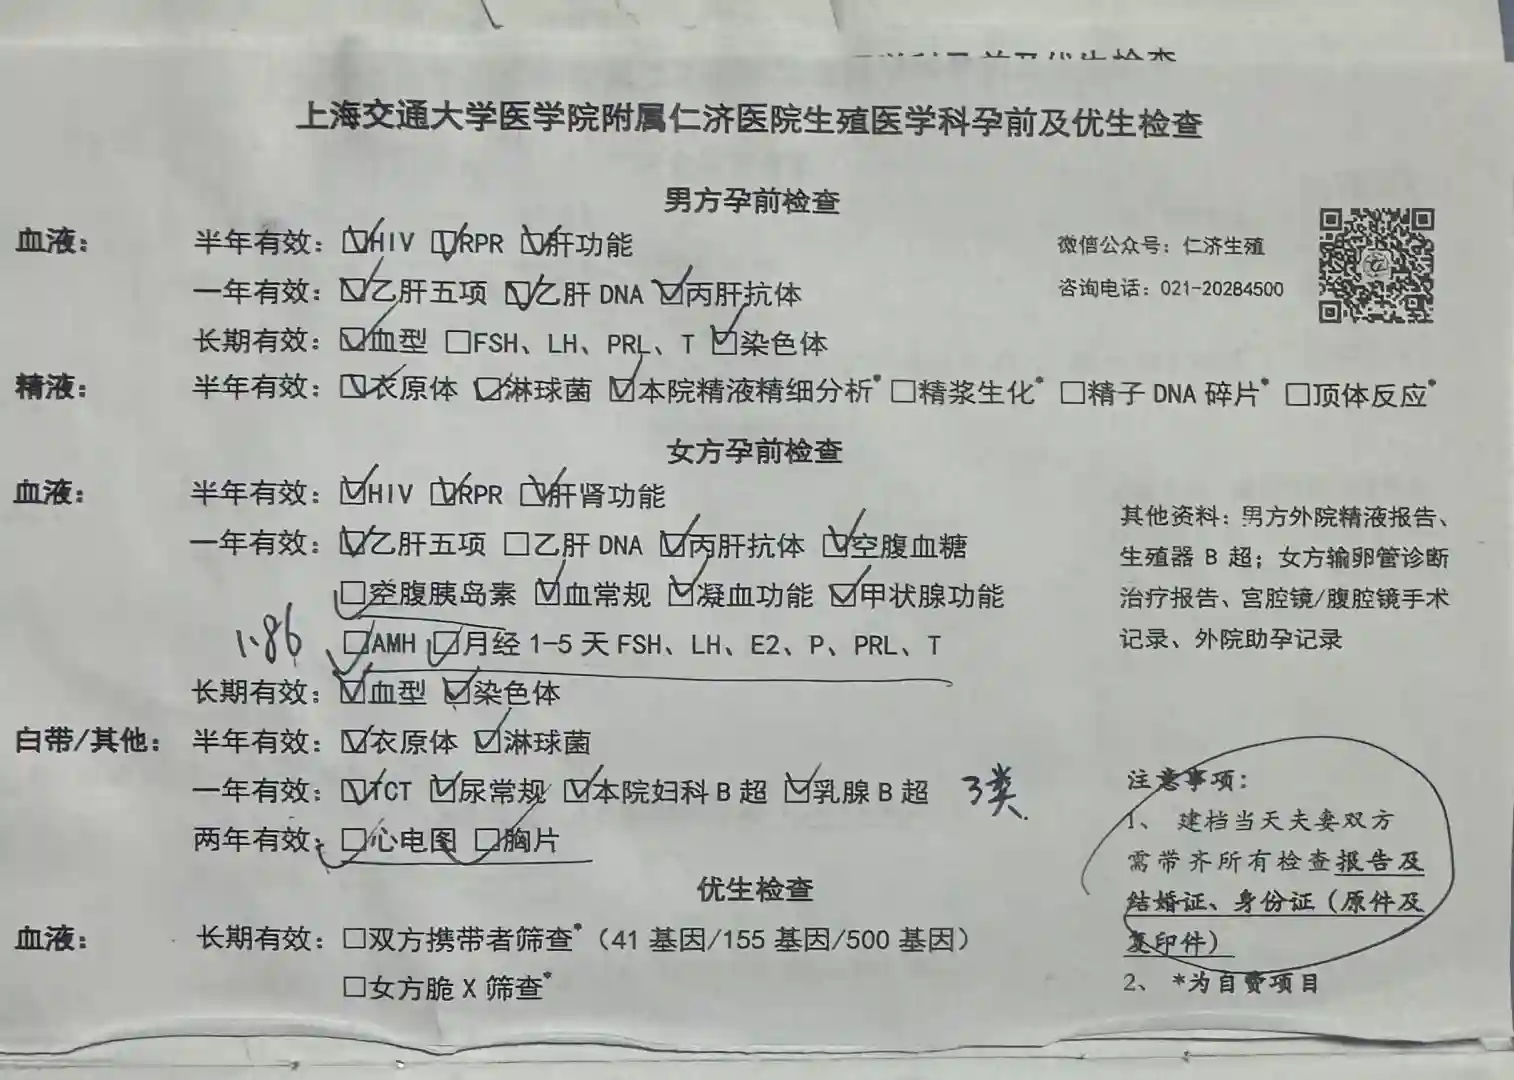 上海交通大学医学院附属仁济医院生殖医学科孕前及优生检查
男方孕前检查
血液： 半年有效：☑HIV ☑RPR ☑肝功能
微信公众号：仁济生殖
一年有效：☑乙肝五项 ☑乙肝 DNA ☑丙肝抗体
咨询电话：021-20284500
长期有效：☑血型 □FSH、LH、PRL、T ☑染色体
精液： 半年有效：☑衣原体 ☑淋球菌 ☑本院精液精细分析* □精浆生化* □精子 DNA 碎片* □顶体反应*
女方孕前检查
血液： 半年有效：☑HIV ☑RPR ☑肝肾功能
一年有效：☑乙肝五项 □乙肝 DNA ☑丙肝抗体 ☑空腹血糖
☑空腹胰岛素 ☑血常规 ☑凝血功能 ☑甲状腺功能
1.86 ☑AMH ☑月经 1-5 天 FSH、LH、E2、P、PRL、T
长期有效：☑血型 ☑染色体
其他资料：男方外院精液报告、
生殖器 B 超；女方输卵管诊断
治疗报告、宫腔镜/腹腔镜手术
记录、外院助孕记录
白带/其他： 半年有效：☑衣原体 ☑淋球菌
一年有效：☑TCT ☑尿常规 ☑本院妇科 B 超 ☑乳腺 B 超 3类.
两年有效：☑心电图 ☑胸片
优生检查
血液： 长期有效：□双方携带者筛查*（41 基因/155 基因/500 基因）
□女方脆 X 筛查*
注意事项：
1、 建档当天夫妻双方
需带齐所有检查报告及
结婚证、身份证（原件及
复印件）
2、 *为自费项目